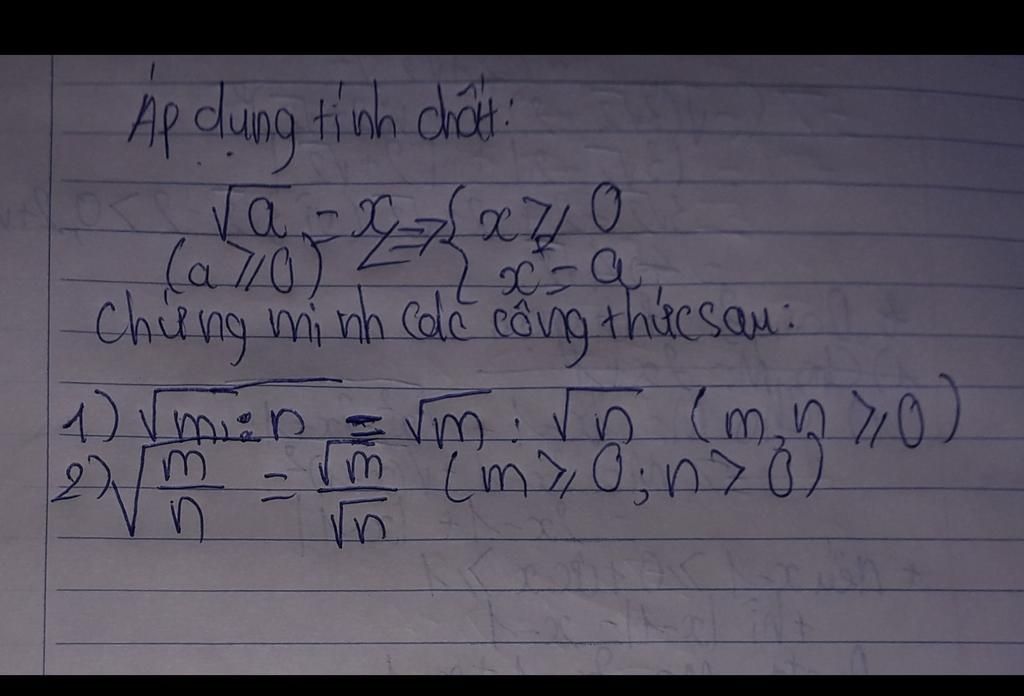 Áp dụng tính chất:
√a = x <=> { x ⩾ 0
(a ⩾ 0) { x² = a
Chứng minh các công thức sau:
1) √m.n = √m . √n (m, n ⩾ 0)
2) √m/n = √m/√n (m ⩾ 0; n > 0)